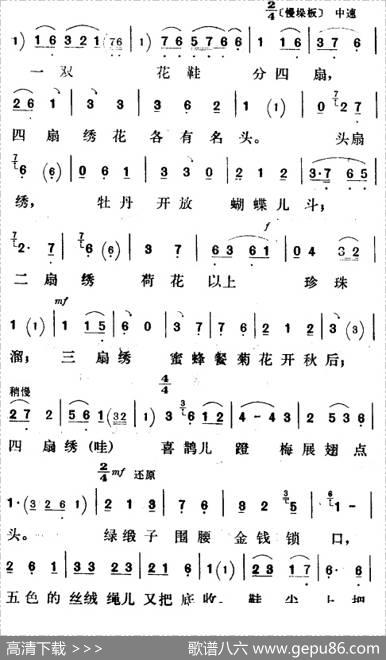 2/4〔慢垛板〕 中速
1) 1 6 3 2 1 (7 6 | 1) 7 6 5 7 6 6 | 1 1 6 | 3 7 6
一双 花鞋 分四扇,
2 6 1 | 3 3 | 2 3 6 2 | 1 (1) | 0 2 7
四扇绣花各有名头。 头扇
6 (6) | 0 6 1 | 3 3 0 | 2 1 2 | 3·7 6 5
绣, 牡丹开放 蝴蝶儿斗;
2· 7 | 6 (6) | 3 7 | 6 3 6 1 | 0 4 3 2
f
二扇绣 荷花以上 珍珠
mf
1 (1) | 1 1 5 | 6 0 | 3 7 | 7 6 | 2 1 2 | 3 (3)
溜; 三扇绣 蜜蜂餐菊花开秋后;
稍慢 4/4
2 7 2 | 5 6 1 (3 2 | 1) 3 6 1 2 | 2 - 4 3 | 2 5 3 6
四扇绣(哇) 喜鹊儿蹬 梅展翅点
2/4 mf 还原
1· (3 2 6 1) | 2 1 3 | 7 6 | 8 2 5 | 1 -
头。 绿缎子围腰 金钱锁口,
2 6 1 | 3 1 3 | 2 3 2 | 1 (1) | 2 3 1 7 | 6· 6
五色的丝绒绳儿又把底收。鞋尖上把
高清下载 >>> 歌谱八六 www.gepu86.com